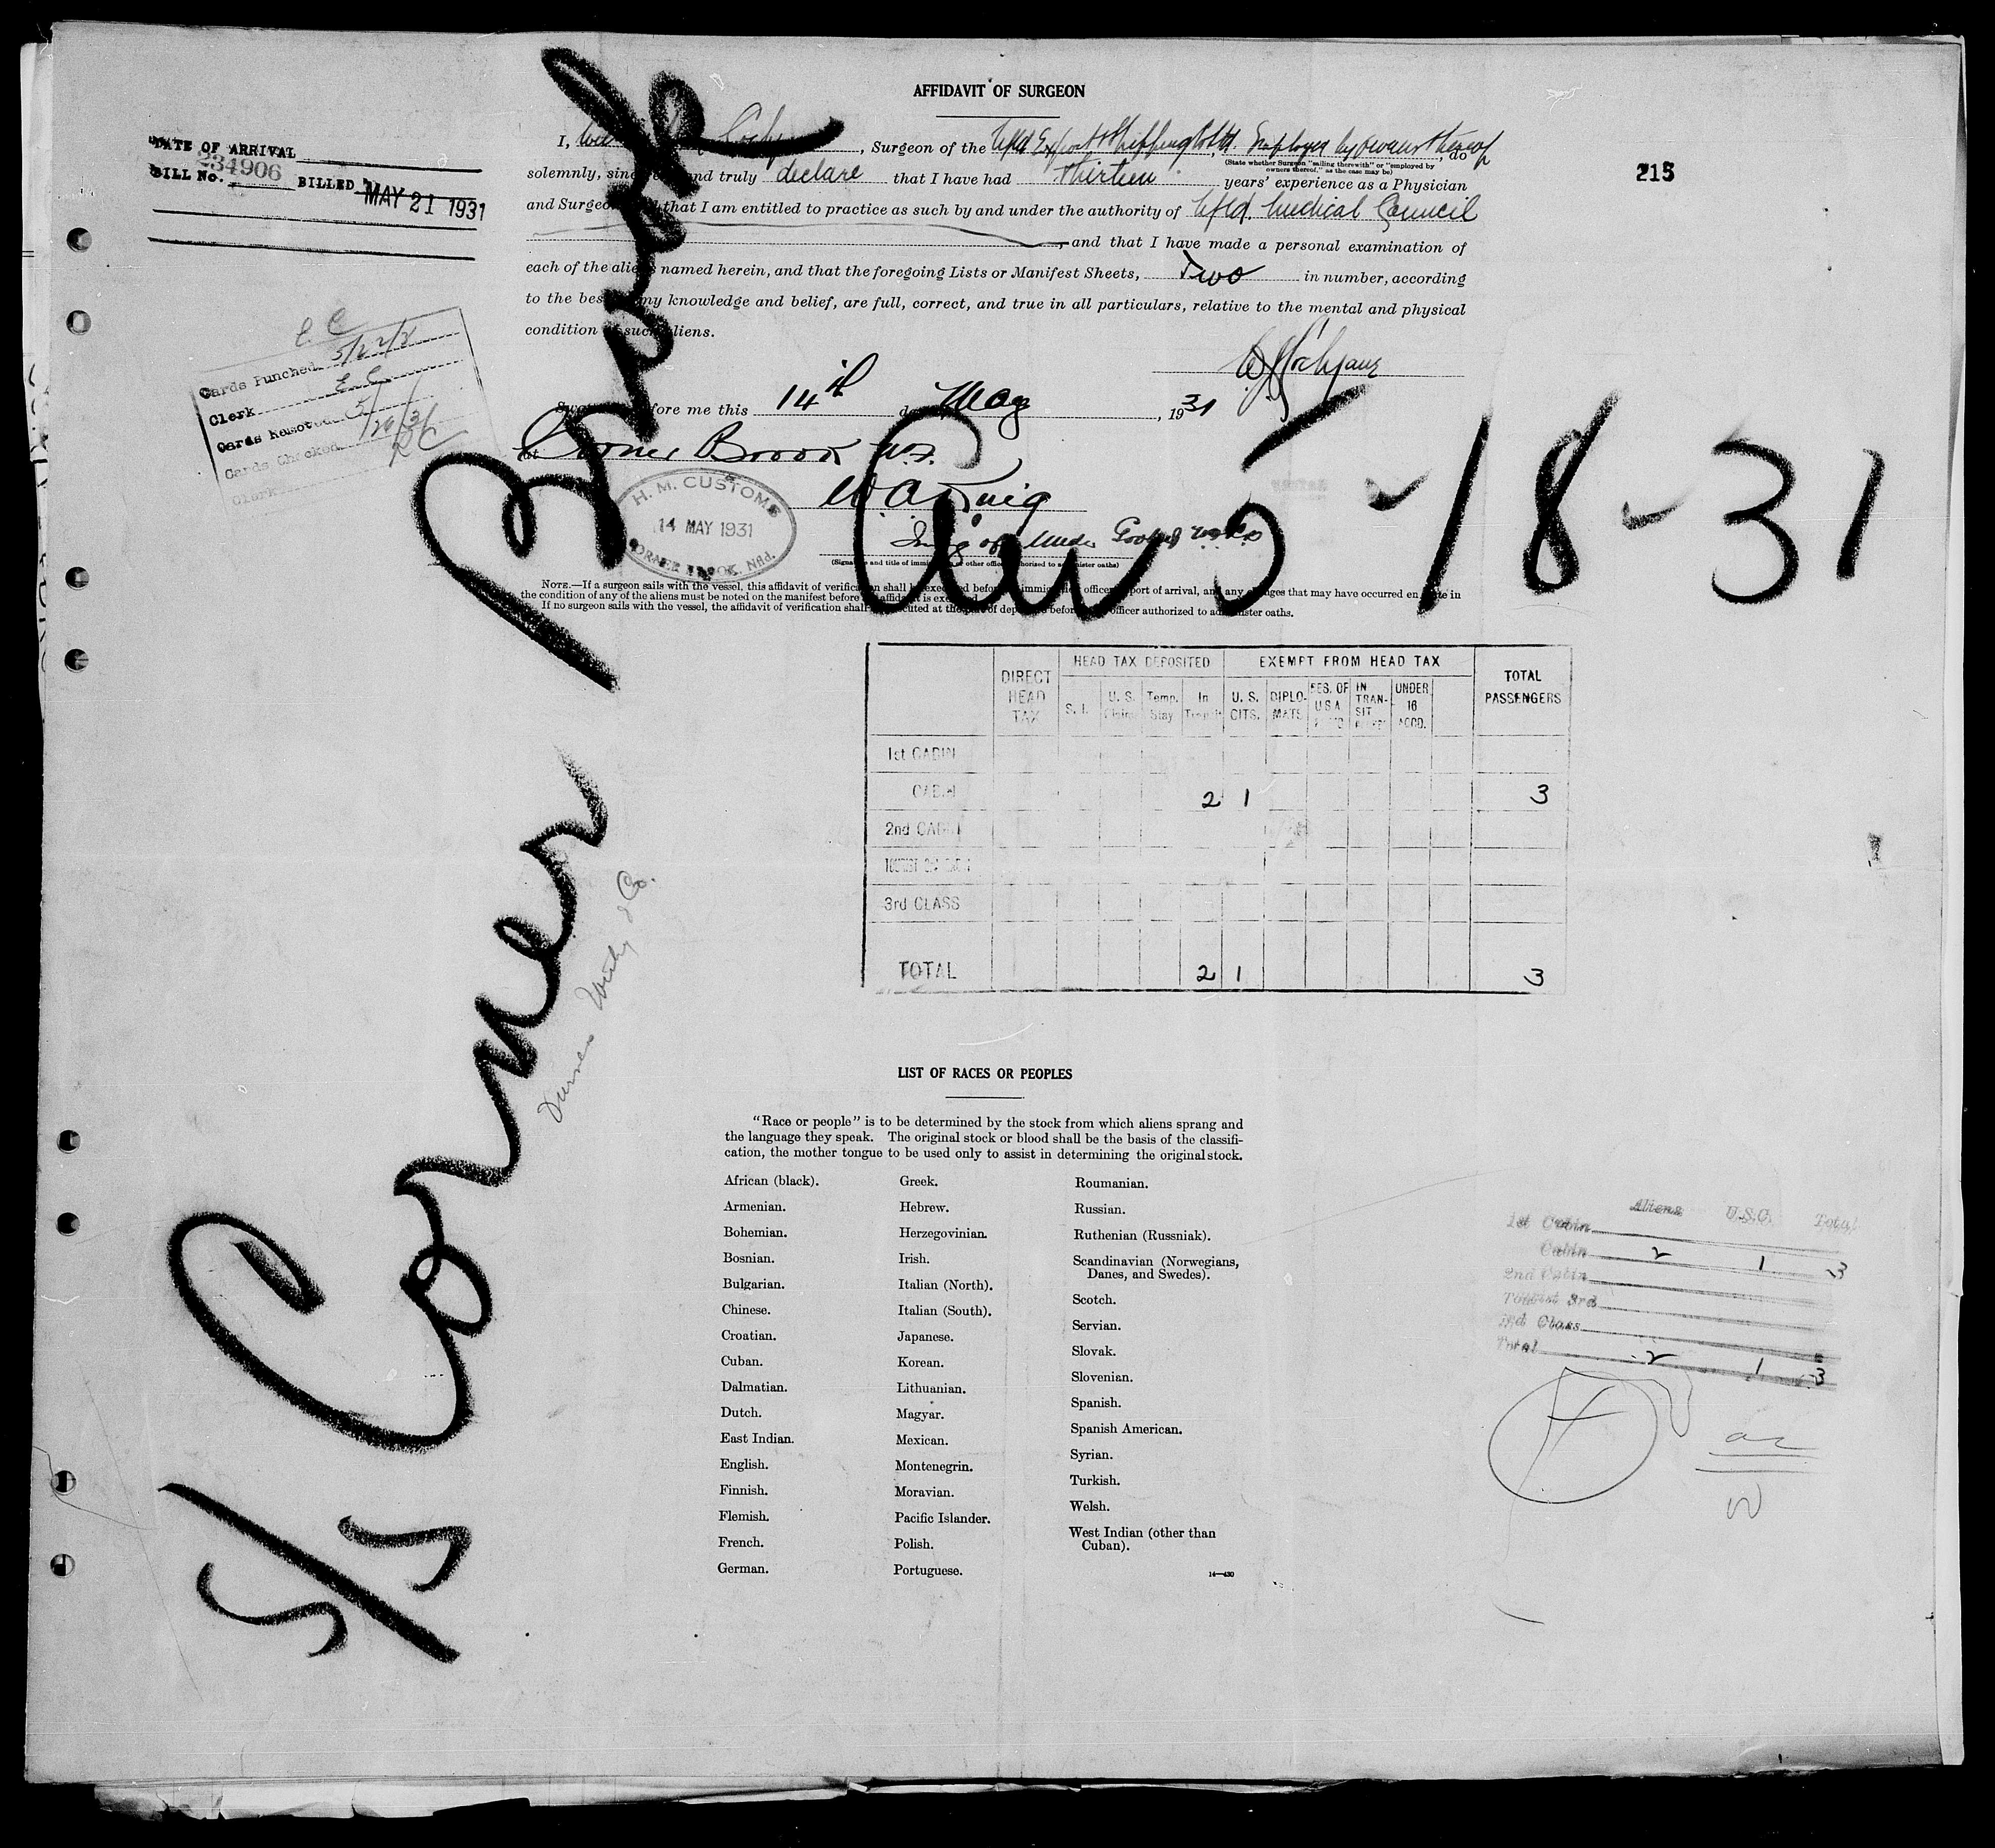 AFFIDAVIT OF SURGEON
I, , Surgeon of the Nfld Export & Shipping Co Ltd. Employed by owners thereof, do
(State whether Surgeon "sailing therewith" or "employed by owners thereof," as the case may be)
solemnly, and truly declare that I have had thirteen years' experience as a Physician
and that I am entitled to practice as such by and under the authority of Nfld. Medical Council
, and that I have made a personal examination of
each of the aliens named herein, and that the foregoing Lists or Manifest Sheets, Two in number, according
to the best my knowledge and belief, are full, correct, and true in all particulars, relative to the mental and physical
condition such aliens.
before me this 14th May, 1931
at Corner Brook N.F.
(Signature and title of immigration or other officer authorized to administer oaths)
NOTE.—If a surgeon sails with the vessel, this affidavit of verification shall be executed before immigration officer port of arrival, and any changes that may have occurred en route in
the condition of any of the aliens must be noted on the manifest before affidavit is executed
If no surgeon sails with the vessel, the affidavit of verification shall executed at the port of departure before officer authorized to administer oaths.
DATE OF ARRIVAL
BILL No. 234906 BILLED MAY 21 1931
215
Cards Punched
Clerk
Cards
Cards Checked
Clerk
H. M. CUSTOMS
14 MAY 1931
CORNER BROOK, Nfld.
S/S Corner Brook
Arr 5-18-31
HEAD TAX DEPOSITED EXEMPT FROM HEAD TAX
DIRECT HEAD TAX S. I. U. S. Claim Temp. Stay In Transit U. S. CITS. DIPLO-MATS RES. OF U S A IN TRAN-SIT UNDER 16 ACCD. TOTAL PASSENGERS
1st CABIN
CABIN 2 1 3
2nd CABIN
3rd CLASS
TOTAL 2 1 3
& Co.
LIST OF RACES OR PEOPLES
"Race or people" is to be determined by the stock from which aliens sprang and
the language they speak. The original stock or blood shall be the basis of the classifi-
cation, the mother tongue to be used only to assist in determining the original stock.
African (black).
Armenian.
Bohemian.
Bosnian.
Bulgarian.
Chinese.
Croatian.
Cuban.
Dalmatian.
Dutch.
East Indian.
English.
Finnish.
Flemish.
French.
German.
Greek.
Hebrew.
Herzegovinian.
Irish.
Italian (North).
Italian (South).
Japanese.
Korean.
Lithuanian.
Magyar.
Mexican.
Montenegrin.
Moravian.
Pacific Islander.
Polish.
Portuguese.
Roumanian.
Russian.
Ruthenian (Russniak).
Scandinavian (Norwegians,
Danes, and Swedes).
Scotch.
Servian.
Slovak.
Slovenian.
Spanish.
Spanish American.
Syrian.
Turkish.
Welsh.
West Indian (other than
Cuban).
14—430
Aliens U.S.C. Total
1st Cabin
Cabin 2 1 3
2nd Cabin
Tourist 3rd
3rd Class
Total 2 1 3